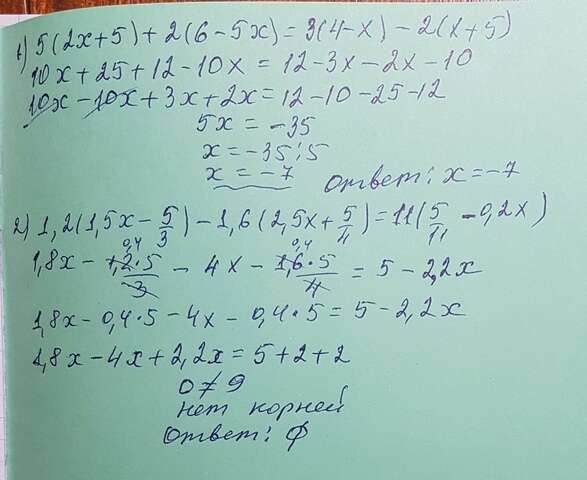 1) 5(2x+5)+2(6-5x)=3(4-x)-2(x+5)
10x+25+12-10x=12-3x-2x-10
10x-10x+3x+2x=12-10-25-12
5x=-35
x=-35:5
x=-7
Ответ: x=-7
2) 1,2(1,5x-5/3)-1,6(2,5x+5/4)=11(5/11-0,2x)
1,8x-1,2·5/3 0,4 -4x-1,6·5/4 0,4 =5-2,2x
1,8x-0,4·5-4x-0,4·5=5-2,2x
1,8x-4x+2,2x=5+2+2
0≠9
нет корней
Ответ: ∅